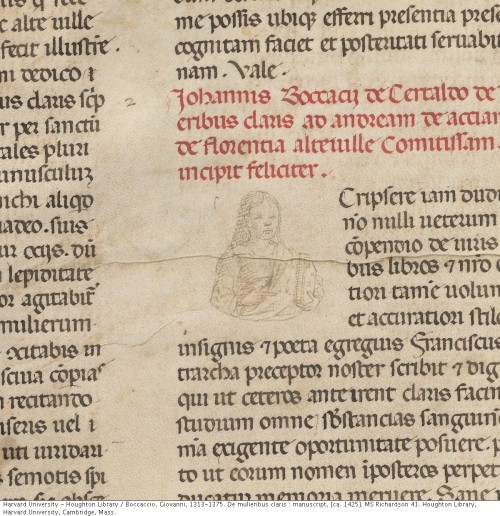 s q̄ sele
c alte uille
fecit illustrē.
ni dedico ⁊
us claris scp̄
r per sanctū
tales pluri
unusculuʒ
nichi aliqd̄
adeo. suis
ur ocijs. dū
lepiditate
or agitabit̄
mulierum
ocitabis in
sciua cōpias
recitando
nseris uel i
uti uiridari
s semotis spi
me possis ubiqꝫ efferri presentia pres
cognitam faciet et posteritati seruabit
nam. Vale.
Johannis Boccacij de Certaldo de
eribus claris ad andream de acciar
de florentia alteuille Comitissam.
incipit feliciter.
Cripsere iam dudū
nō nulli ueterum
cōpendio de uiris
bus libros ⁊ nr̄o
tiori tamē uolum
et accuratiori stilo
insignis ⁊ poeta egregius Franciscus
trarcha preceptor noster scribit ⁊ dig
qui ut ceteros anteirent claris facin
studium omne sb̄stancias sanguinē
mā exigente oportunitate posuere. p
to ut eorum nomen īposteros perpet
ducatur memoria meruere. Sane
Harvard University - Houghton Library / Boccaccio, Giovanni, 1313-1375. De mulieribus claris : manuscript, [ca. 1425]. MS Richardson 41. Houghton Library,
Harvard University, Cambridge, Mass.